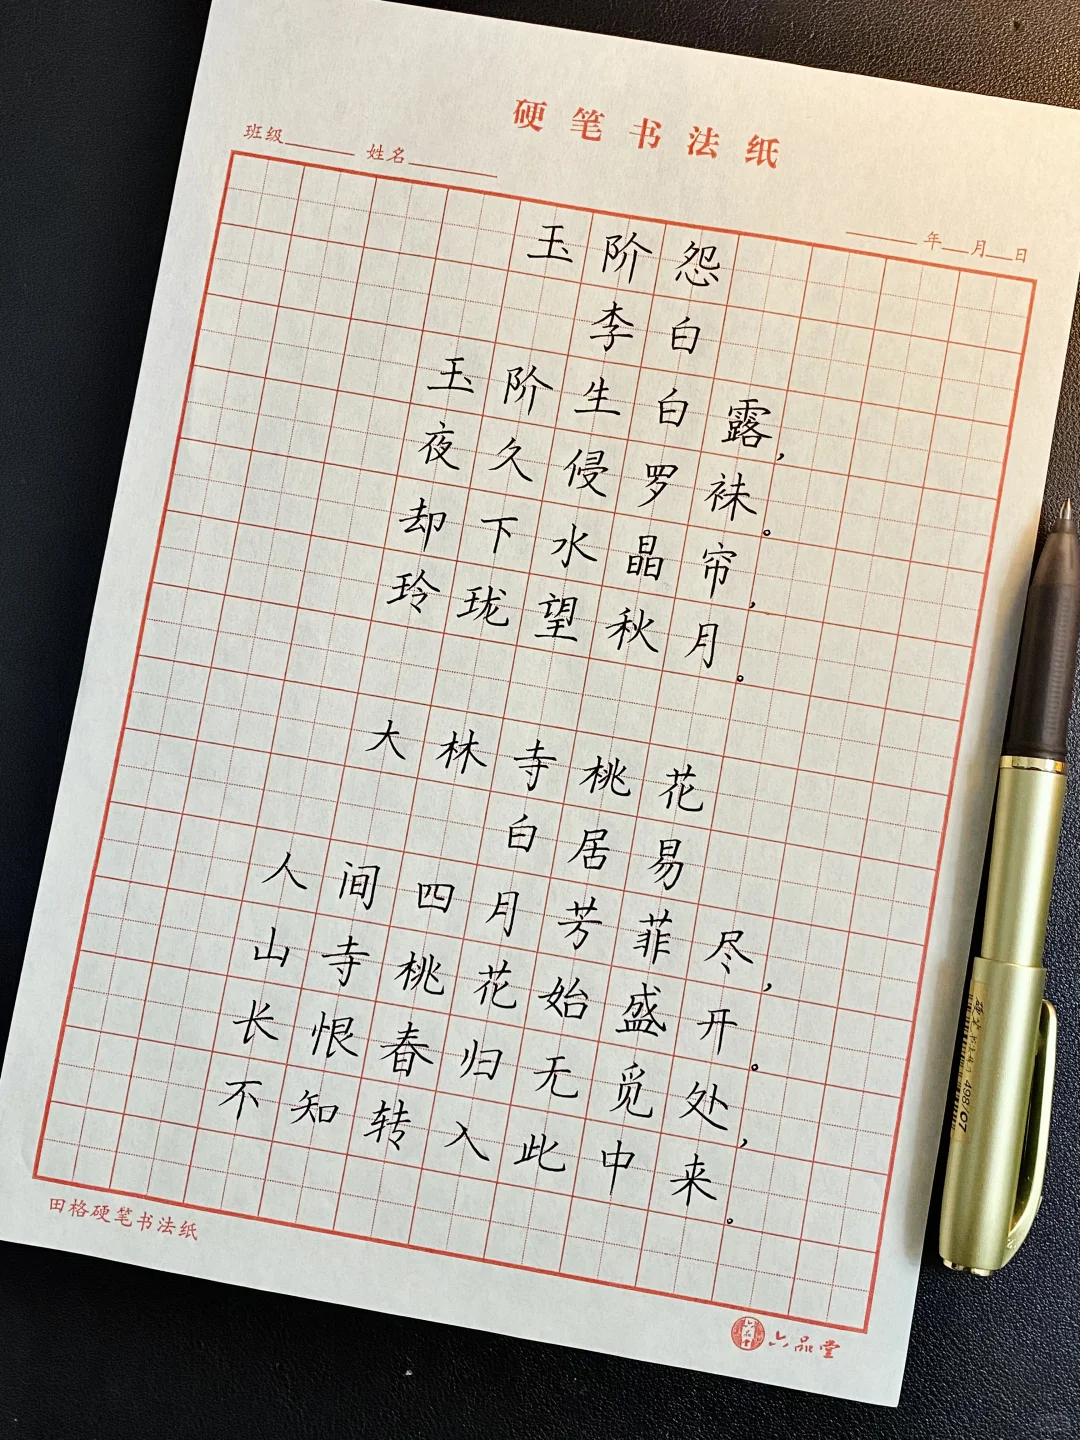 硬笔书法纸
班级 姓名
年 月 日
玉阶怨
李白
玉阶生白露，
夜久侵罗袜。
却下水晶帘，
玲珑望秋月。
大林寺桃花
白居易
人间四月芳菲尽，
山寺桃花始盛开。
长恨春归无觅处，
不知转入此中来。
田格硬笔书法纸
六品堂
六品堂
498/07